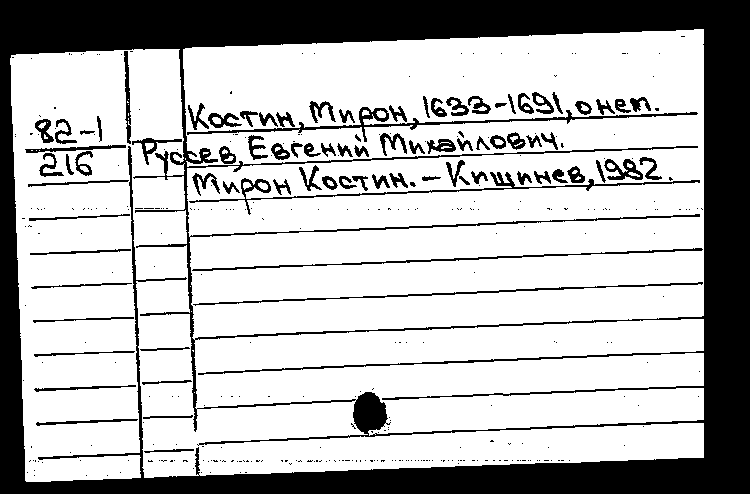 Костин, Мирон, 1633-1691, о нем.
82-1
216
Руссев, Евгений Михайлович.
Мирон Костин. – Кишинев, 1982.